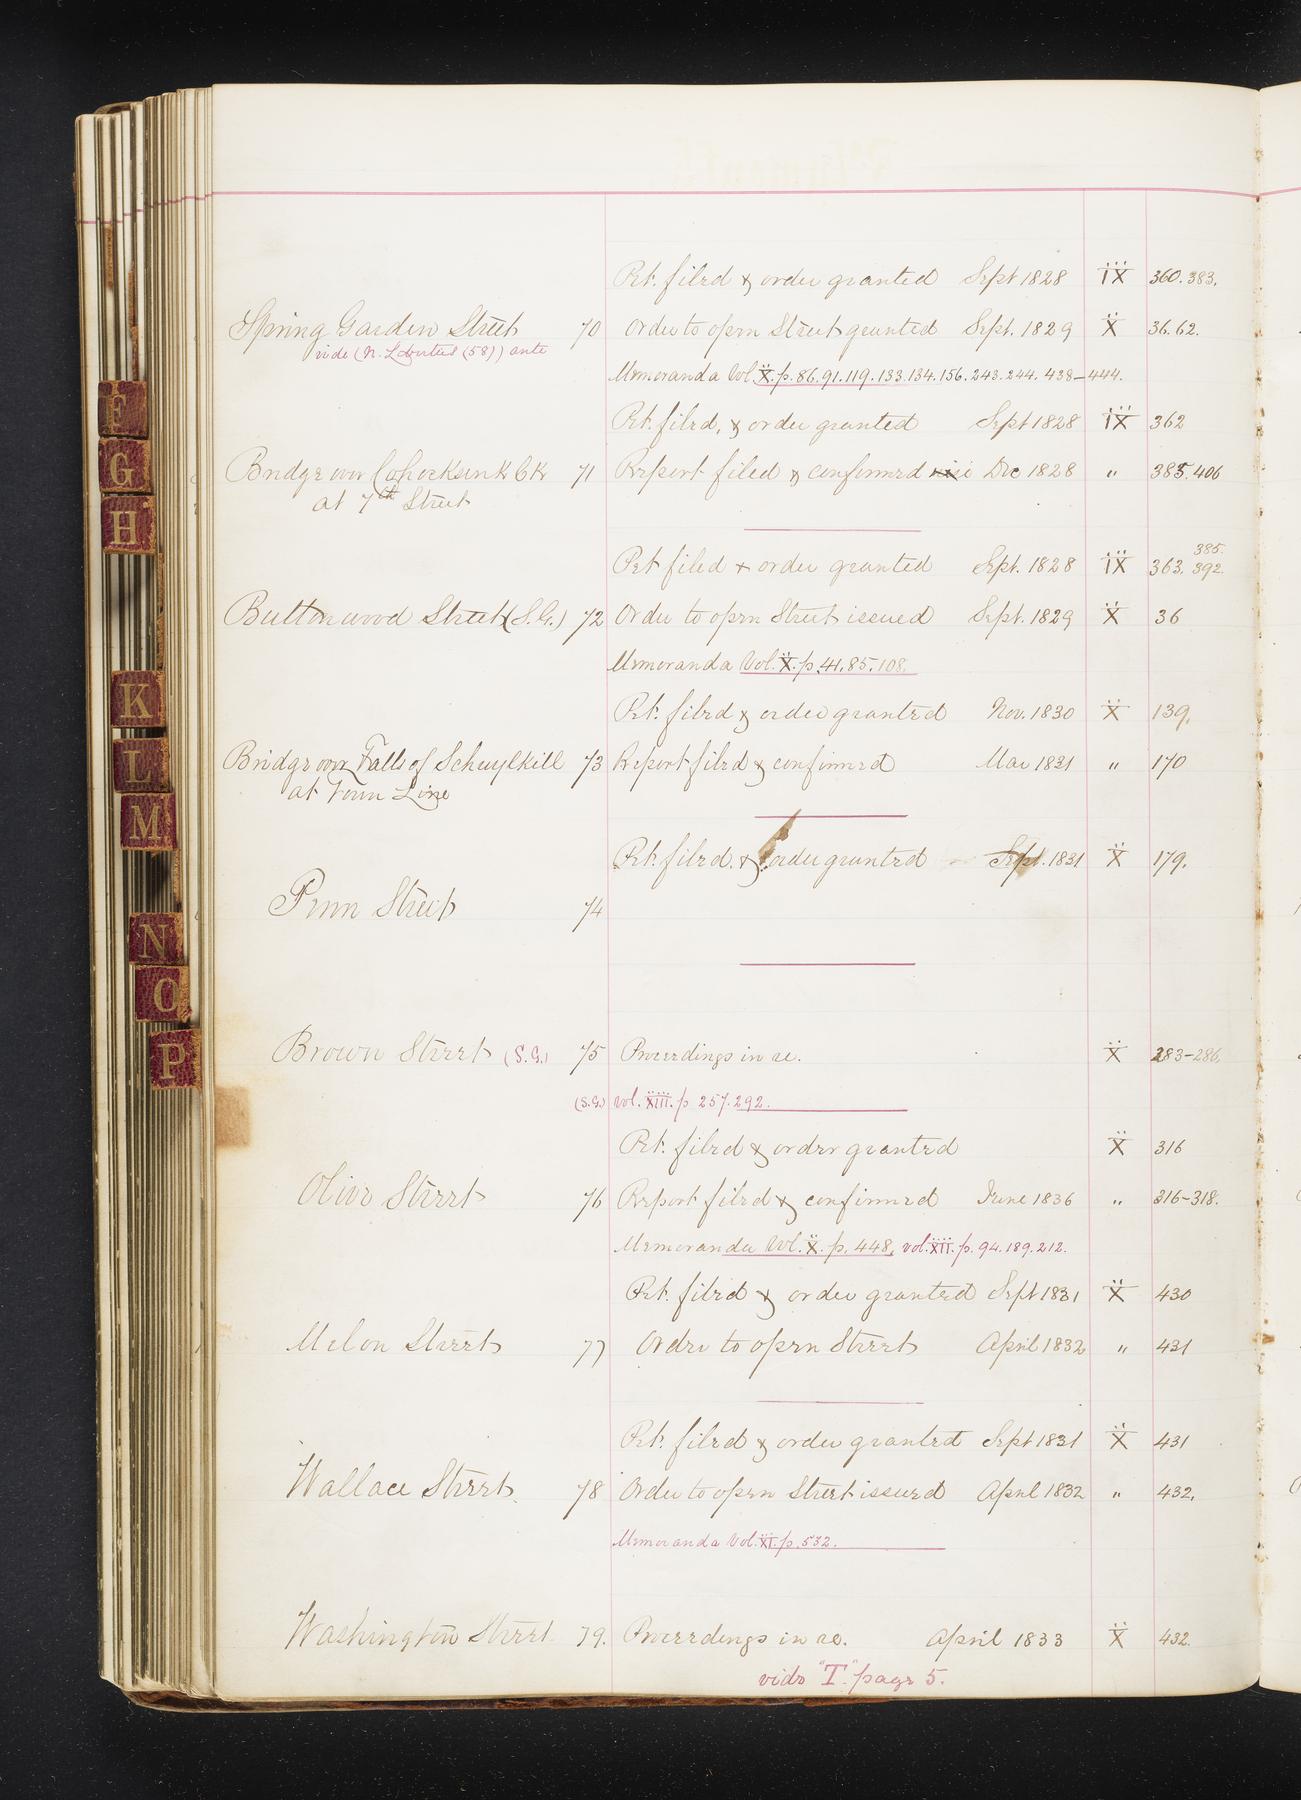 Pet. filed & order granted Sept 1828 IX 360. 383.
Spring Garden Street 70 Order to open Street granted Sept. 1829 X 36. 62.
vide (N. Liberties (58)) ante
Memoranda Vol. X. p. 86. 91. 119. 133. 134. 156. 243. 244. 438-444.
Pet. filed, & order granted Sept 1828 IX 362
Bridge over Cohocksink Ck 71 Report filed & confirmed nisi Dec 1828 " 385. 406
at 7th Street
Pet filed + order granted Sept. 1828 IX 363. 385. 392.
Buttonwood Street (S.G.) 72 Order to open Street issued Sept. 1829 X 36
Memoranda Vol. X. p. 41. 85. 108.
Pet. filed & order granted Nov. 1830 X 139.
Bridge over Falls of Schuylkill 73 Report filed & confirmed Mar 1831 " 170
at Town Line
Pet. filed. & order granted Sept. 1831 X 179.
Penn Street 74
Brown Street (S.G.) 75 Proceedings in re. X 283-286.
(S.G.) vol. XIII. p. 257. 292.
Pet. filed & order granted X 316
Olive Street 76 Report filed & confirmed June 1836 " 316-318.
Memoranda Vol. X. p. 448, vol. XII. p. 94. 189. 212.
Pet. filed & order granted Sept 1831 X 430
Melon Street 77 Order to open Street April 1832 " 431
Pet. filed & order granted Sept 1831 X 431
Wallace Street 78 Order to open Street issued April 1832 " 432.
Memoranda Vol. XI. p. 532.
Washington Street 79. Proceedings in re. April 1833 X 432.
vide "T" page 5.
F
G
H
K
L
M
N
O
P